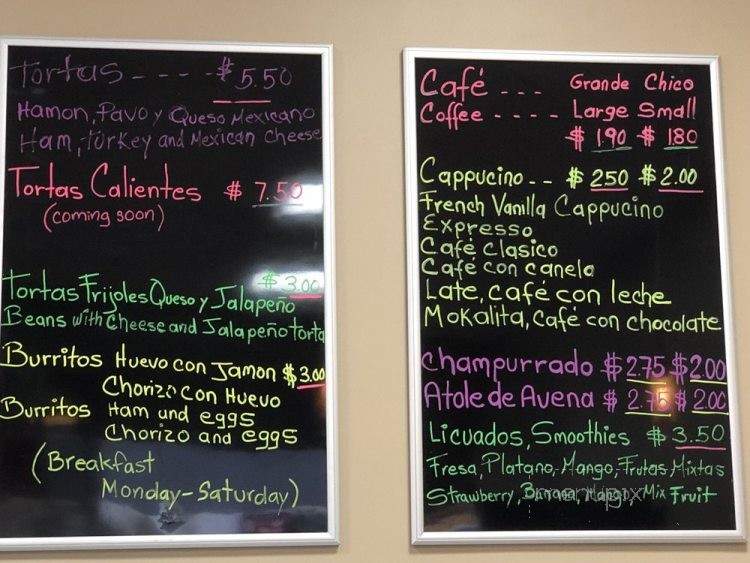 Tortas - - - - $5.50
Hamon, Pavo y Queso Mexicano
Ham, turkey and Mexican cheese
Tortas Calientes $ 7.50
(coming soon)
$3.00
Tortas Frijoles Queso y Jalapeño
Beans with Cheese and Jalapeño torta
Burritos Huevo con Jamon $3.00
Chorizo con Huevo
Burritos Ham and eggs
Chorizo and eggs
(Breakfast
Monday-Saturday)
Café - - - Grande Chico
Coffee - - - - Large Small
$ 1.90 $ 180
Cappucino - - $ 250 $2.00
French Vanilla Cappucino
Expresso
Café Clasico
Café con canela
Late, café con leche
Mokalita, café con chocolate
Champurrado $2.75 $2.00
Atole de Avena $ 2.75 $ 2.00
Licuados, Smoothies $ 3.50
Fresa, Platano, Mango, Frutas Mixtas
Strawberry, Banana, Mango, Mix Fruit